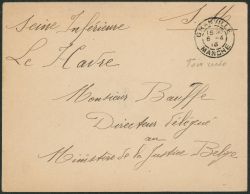 S. M.
Seine Inférieure
Le Havre
GRANVILLE
15
6 - 4
16
MANCHE
Monsieur Bauffe
Directeur Délégué
au
Ministère de la Justice Belge